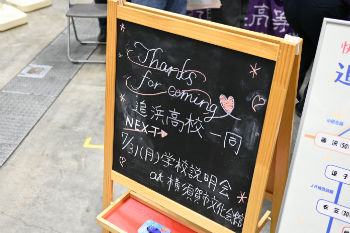 Thanks
for coming
追浜高校一同
NEXT→
7/31(月)学校説明会
at 横須賀市文化会館
高等